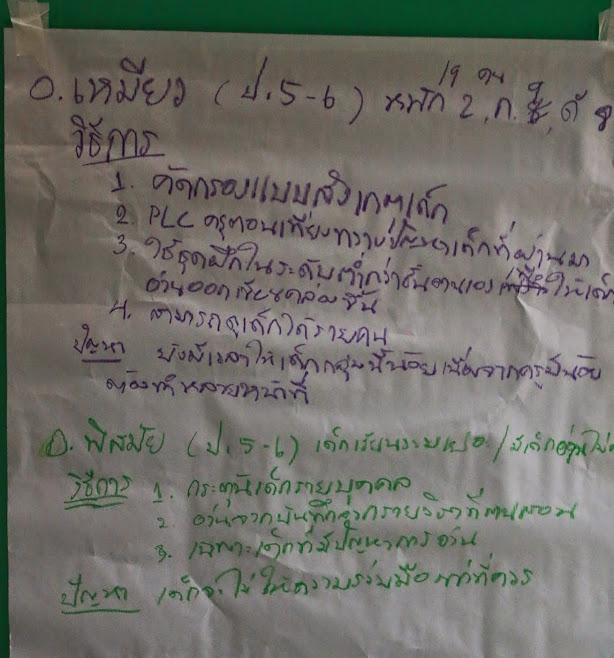 19 คน
อ.เหมียว (ป.5-6) หนัก 2, ก.
วิธีการ
1. คัดกรองแบบสังเกตเด็ก
2. PLC ครูตอนเที่ยงทราบปัญหาเด็กที่ผ่านมา
3. ใช้ชุดฝึกในระดับต่ำกว่าชั้นตนเอง ให้เด็ก
อ่านออกเขียนคล่องขึ้น
4. สามารถดูเด็กได้รายคน
ปัญหา ยังมีเวลาให้เด็กกลุ่มนี้น้อย เนื่องจากครูมีน้อย
ต้องทำหลายหน้าที่
อ.พิสมัย (ป.5-6) เด็กเรียน / มีเด็ก
วิธีการ 1. กระตุ้นเด็กรายบุคคล
2. อ่านจากบันทึก รายวิชาที่ตนสอน
3. เฉพาะเด็กที่มีปัญหาการอ่าน
ปัญหา เด็กจะไม่ให้ความร่วมมือเท่าที่ควร